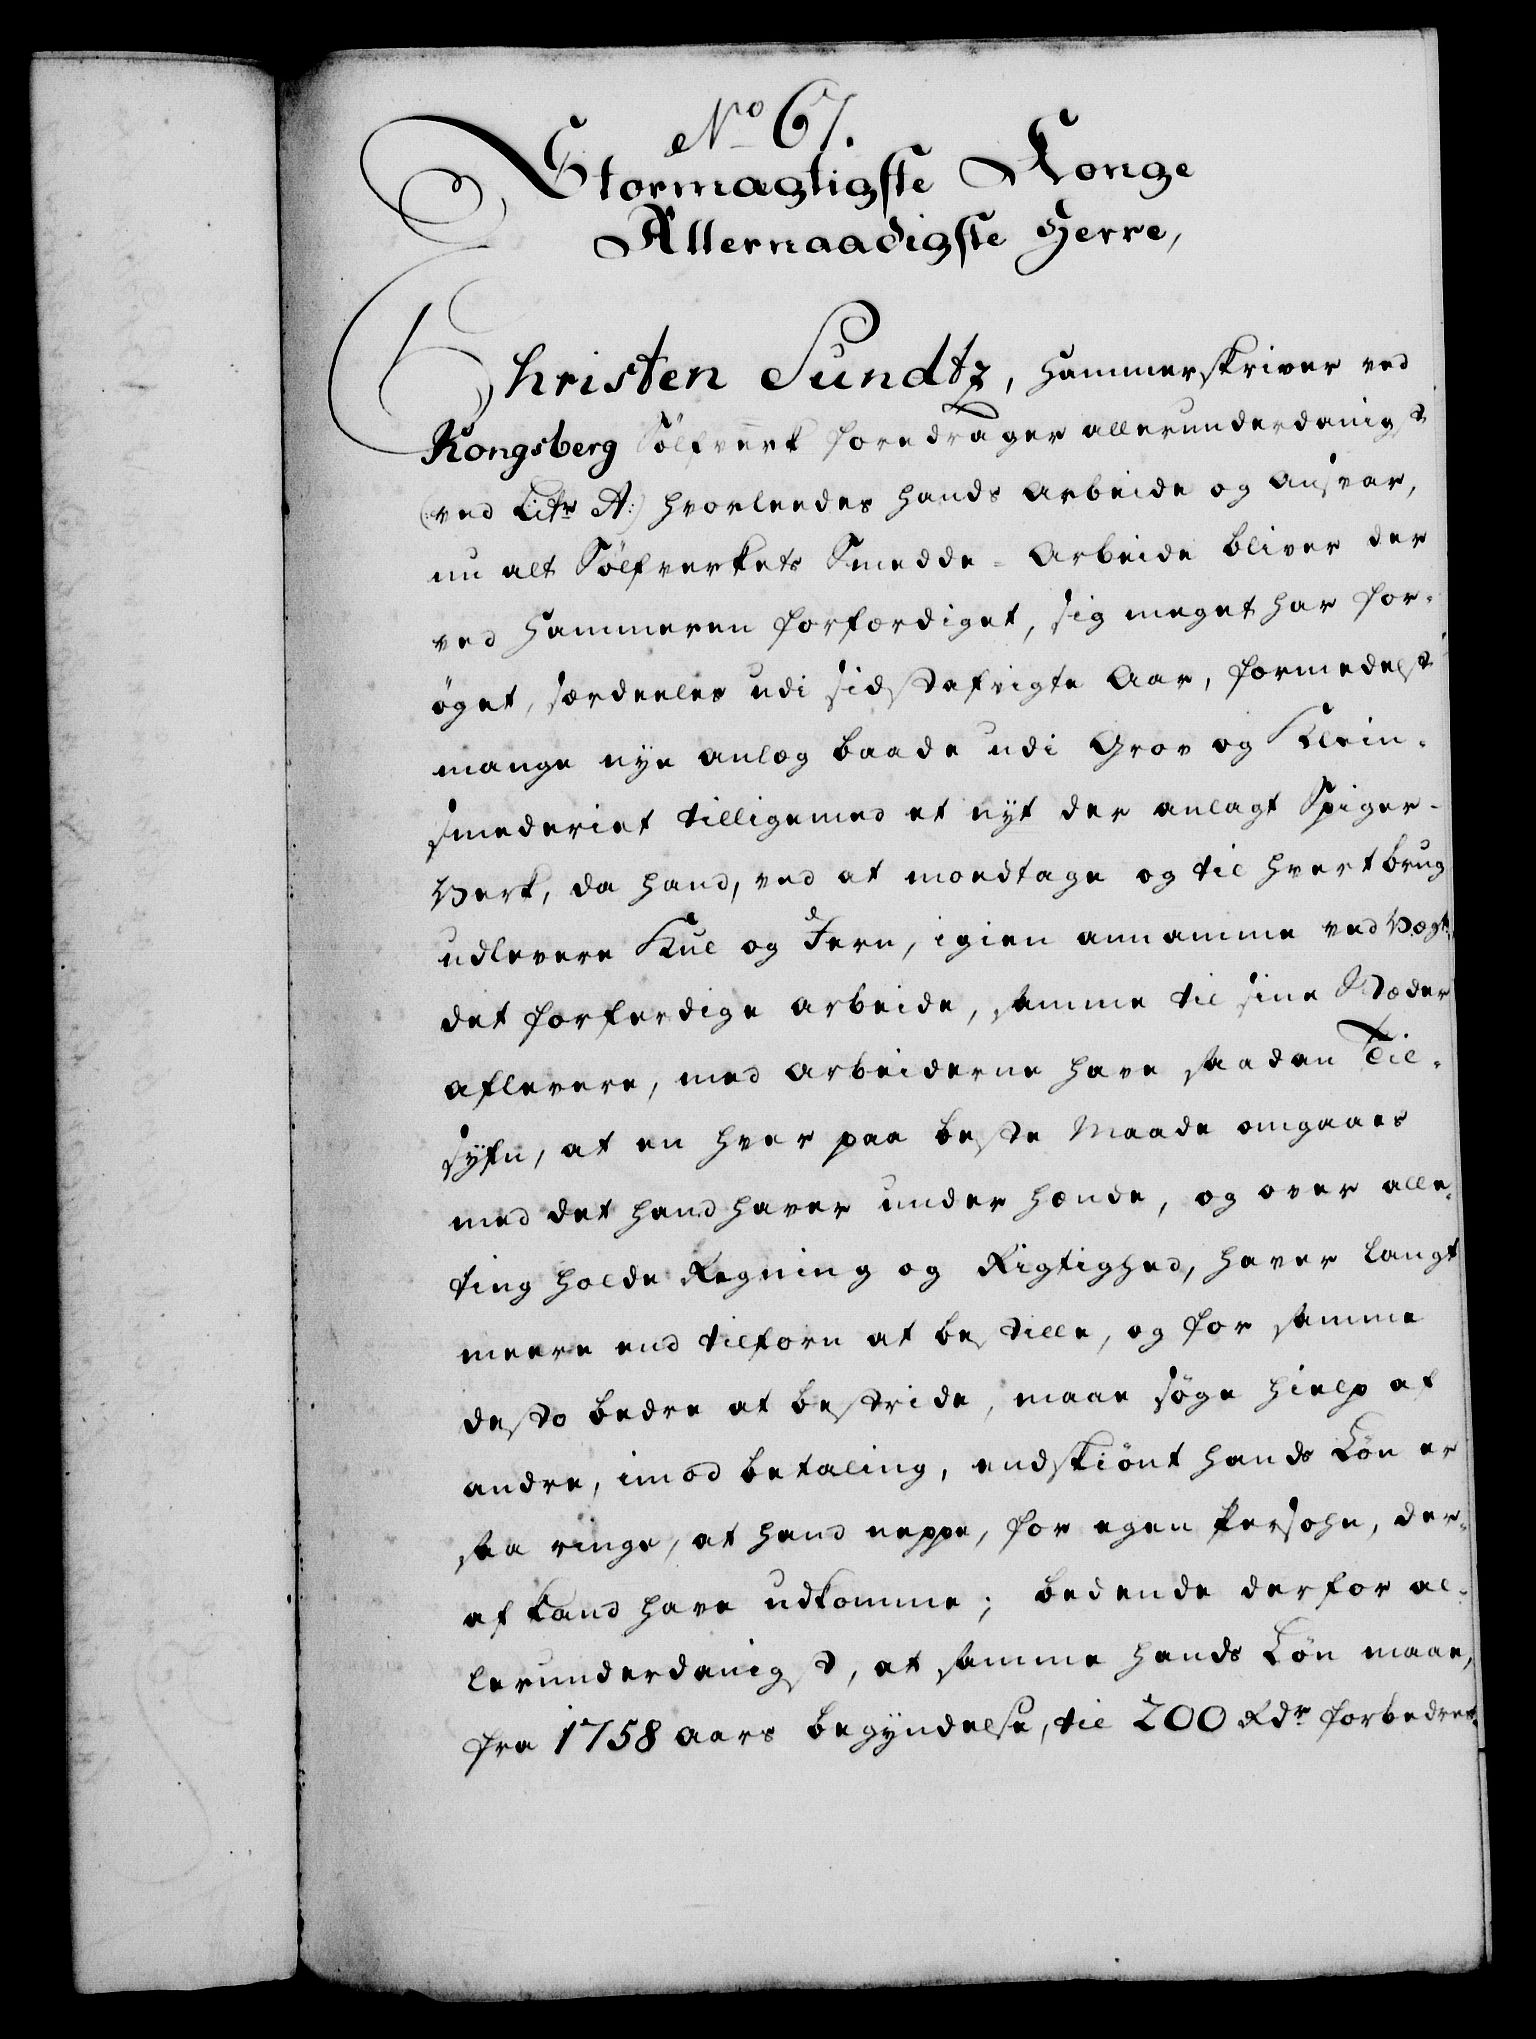 No 67.
Stormægtigste Konge
Allernaadigste Herre,
Christen Sundtz, Hammerskriver ved
Kongsberg Sølfverk foredrager allerunderdanigst
(: ved Litr A:) hvorledes hands Arbeide og Ansvar,
nu alt Sølfverkets Smedde-Arbeide bliver der
ved Hammeren forfærdiget, sig meget har for-
øget, særdeeles udi sidstafvigte Aar, formedelst
mange nye anlæg baade udi Grov og Klein-
smederiet tilligemed et nyt der anlagt Spiger-
Verk, da hand, ved at modtage og til hvert brug
udlevere Kul og Jern, igien annamme ved Vægt
det forferdige arbeide, samme til sine Stæder
aflevere, med Arbeiderne have saadan Til-
syfn, at en hver paa beste Maade omgaaes
med det hand haver under hænde, og over alle-
ting holde Regning og Rigtighed, haver langt
meere end tilforn at bestille, og for samme
desto bedre at bestride, maae søge hielp af
andre, imod betaling, endskiønt hands Løn er
saa ringe, at hand neppe, for egen Persohn, der-
af kand have udkomme; bedende derfor al-
lerunderdanigst, at samme hands Løn maae,
fra 1758 Aars begyndelse, til 200 Rdr forbedres.